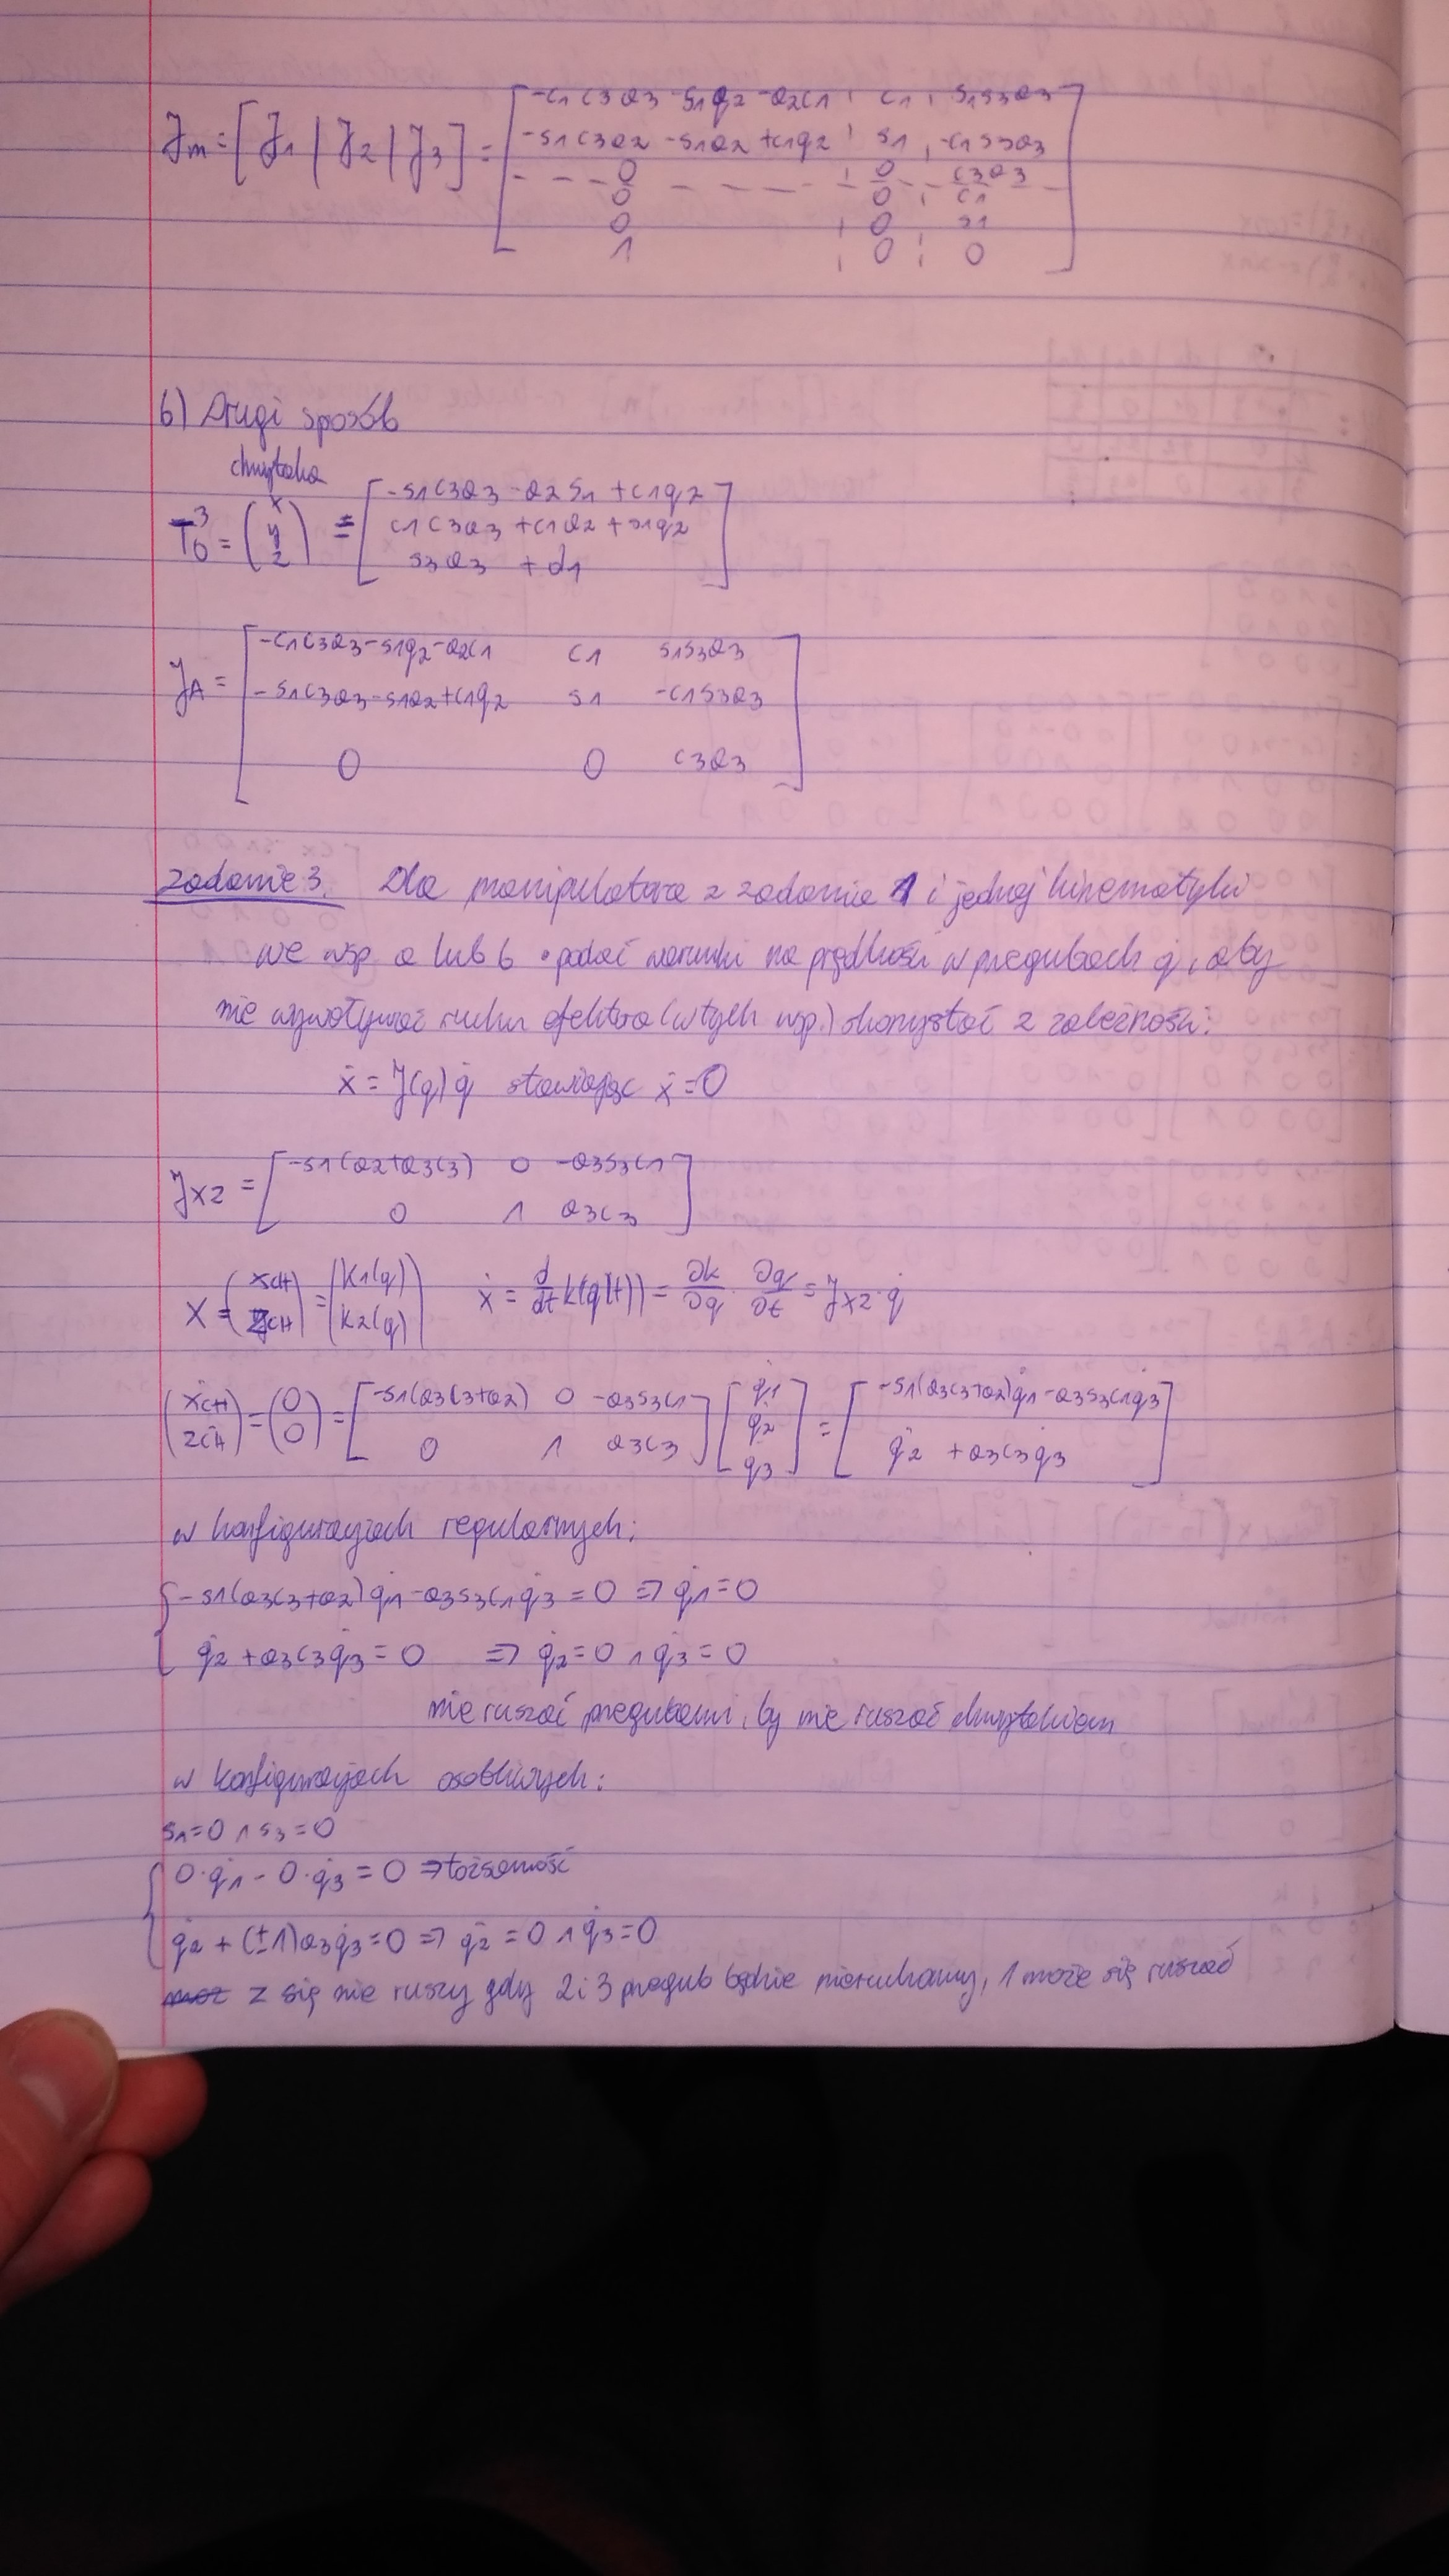 Jm = [J1 | J2 | J3] = [ -c1c3a3 -s1q2 -a2c1 | c1 | s1s3a3
-s1c3a2 -s1a2 +c1q2 | s1 | -c1s3a3
0 | 0 | c3a3
0 | 0 | c1
0 | 0 | s1
1 | 0 | 0 ]
b) Drugi sposób
chwytaka
T0^3 = (x y z) = [ -s1c3a3 -a2s1 +c1q2
c1c3a3 +c1a2 +s1q2
s3a3 + d1 ]
JA = [ -c1c3a3-s1q2-a2c1 c1 s1s3a3
-s1c3a3-s1a2+c1q2 s1 -c1s3a3
0 0 c3a3 ]
Zadanie 3. Dla manipulatora z zadania 1 i jednej kinematyki
we wsp a lub b • podać warunki na prędkości w przegubach q̇, aby
nie wywoływać ruchu efektora (w tych wsp.) skorzystać z zależności:
ẋ = J(q) q̇ stawiając ẋ = 0
Jxz = [ -s1(a2+a3c3) 0 -a3s3c1
0 1 a3c3 ]
X = (xCH zCH) = (k1(q) k2(q)) ẋ = d/dt k(q(t)) = ∂k/∂q · ∂q/∂t = Jxz · q̇
(ẋCH żCH) = (0 0) = [ -s1(a3c3+a2) 0 -a3s3c1 ; 0 1 a3c3 ] [ q̇1 q̇2 q̇3 ] = [ -s1(a3c3+a2)q̇1 -a3s3c1q̇3 ; q̇2 + a3c3q̇3 ]
w konfiguracjach regularnych:
-s1(a3c3+a2)q̇1 -a3s3c1q̇3 = 0 ⇒ q̇1 = 0
q̇2 + a3c3q̇3 = 0 ⇒ q̇2 = 0 ∧ q̇3 = 0
nie ruszać przegubami, by nie ruszać chwytakiem
w konfiguracjach osobliwych:
s1=0 ∧ s3=0
0·q̇1 - 0·q̇3 = 0 ⇒ tożsamość
q̇2 + (±1)a3q̇3 = 0 ⇒ q̇2 = 0 ∧ q̇3 = 0
z się nie ruszy gdy 2 i 3 przegub będzie nieruchomy, 1 może się ruszać